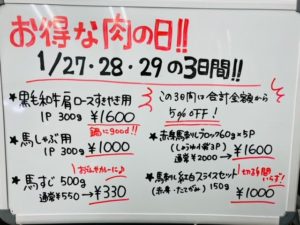 お得な肉の日!!
1/27・28・29の3日間!!
★黒毛和牛肩ロースすきやき用
1P 300g ¥1600
鍋にgood!!
★馬しゃぶ用
1P 300g ¥1000
お正月カレーに♪
★馬すじ 500g
通常¥550→¥330
この3日間は合計金額から
5%OFF!
★赤身馬刺しブロック60g×5P
(しょうゆ小袋3P)
通常¥2000→¥1600
★馬刺し紅白スライスセット
(赤身・たてがみ) 150g
切る手間いらず!
¥1000